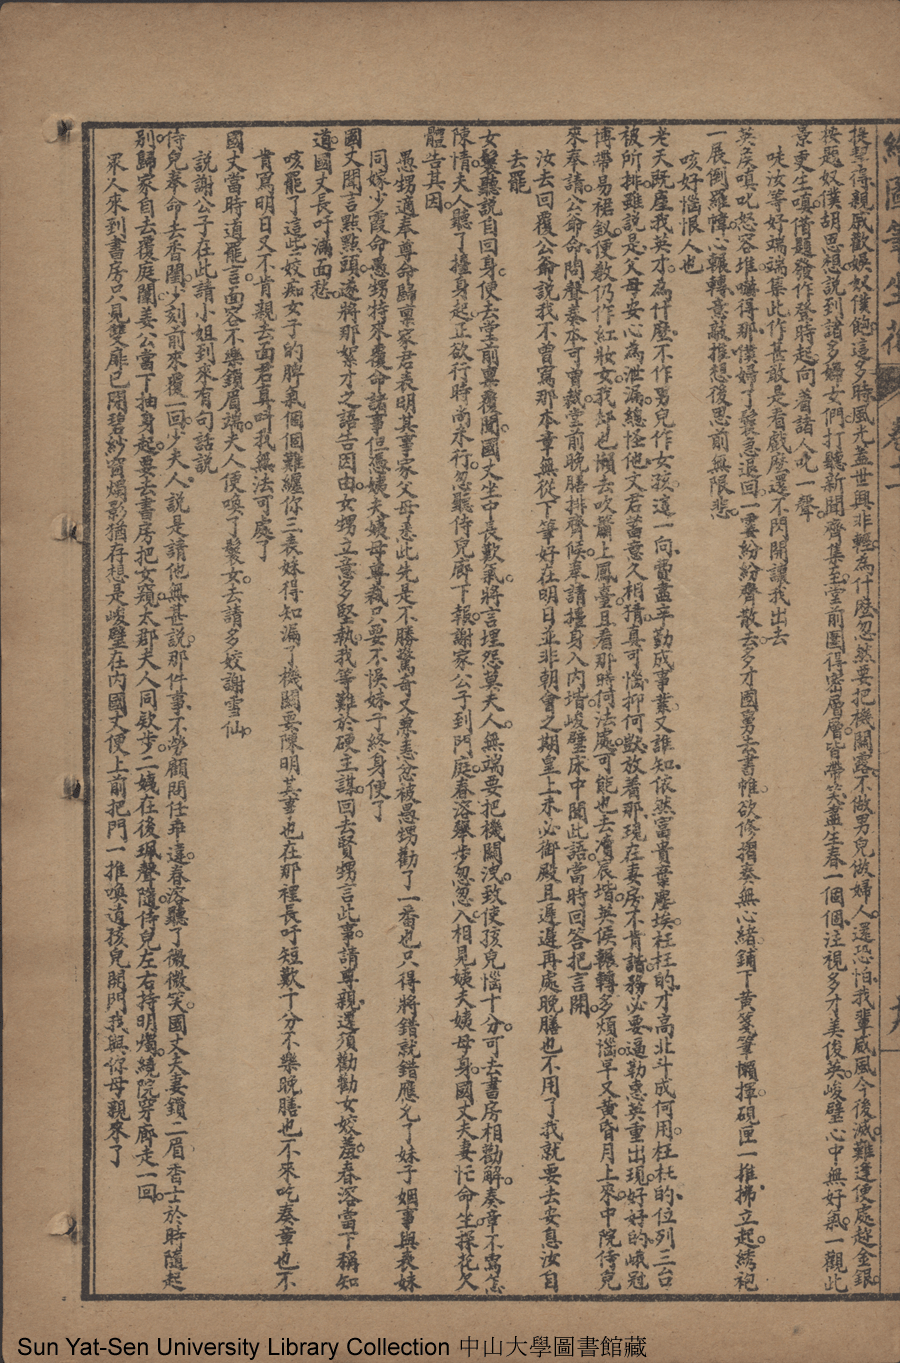 繪圖筆生花 卷二
捴享得親戚歡娛奴僕飽這多時風光蓋世興非輕為什麼忽然要把機關露不做男兒做婦人還恐怕我輩威風今後滅難逢便處越金銀
按題奴僕胡思想說到諸多婦女們打聽新聞齊集至堂前圍得密層層皆帶笑盡生春一個個注視多才美俊英峻璧心中無好氣一觀此
景更生嗔借題發作聲時起向着諸人叱一聲
唗汝等好端端集此作甚敢是看戲麼還不閃開讓我出去
英矦嗔叱怒容堆嚇得那僕婦丫鬟急退回一霎紛紛齊散去多才國舅去書帷欲修摺奏無心緒鋪下黃箋筆懶揮硯匣一推拂立起綉袍
一展倒羅幃心輾轉意敲推想後思前無限悲
咳好惱恨人也
老天既產我英才為什麼不作男兒作女孩這一向費盡辛勤成事業又誰知依然富貴棄塵埃枉枉的才高北斗成何用枉枉的位列三台
被所排雖說是父母安心為泄漏總怪他文君蓄意久相猜真可惱抑何獃放着那現在妻房不肯諧務必要逼勒惠英重出現好好的峨冠
博帶易裙釵便教仍作紅妝女我卻也懶去吹簫上鳳臺且看那時何法處可能也去瀆宸堦英矦輾轉多煩惱早又黃昏月上來中院侍兒
來奉請公爺命問聲綦本可曾裁堂前晚膳排齊候奉請擡身入內堦峻璧床中聞此語當時回答把言開
汝去回覆公爺說我不曾寫那本章無從下筆好在明日並非朝會之期皇上未必御殿且遲遲再處晚膳也不用了我就要去安息汝自
去罷
女鬟聽說自回身便去堂前稟覆聞國丈坐中長歎氣將言埋怨莫夫人無端要把機關洩致使孩兒惱十分可去書房相勸解奏章不寫怎
陳情夫人聽了擡身起正欲行時尚未行忽聽侍兒廊下報謝家公子到門庭春溶舉步忽忽入相見姨夫姨母身國丈夫妻忙命坐探花欠
體告其因
愚甥適奉尊命歸稟家君表明其事家父母悉此先是不勝驚奇又要恚忿被愚甥勸了一番也只得將錯就錯應允了妹子姻事與表妹
同嫁少霞命愚甥特來覆命諸事但憑姨夫姨母尊裁只要不悞妹子終身便了
國丈聞言點點頭遂將那絮才之語告因由女甥立意多堅執我等難於硬主謀回去賢甥言此事請尊親還須勸勸女姣羞春溶當下稱知
道國丈長吁滿面愁
咳罷了這些姣痴女子的脾氣個個難纏你三表妹得知漏了機關要陳明其事也在那裡長吁短歎十分不樂晚膳也不來吃奏章也不
肯寫明日又不肯親去面君真叫我無法可處了
國丈當時道罷言面容不樂鎖眉端夫人便喚丫鬟女去請多姣謝雪仙
說謝公子在此請小姐到來有句話說
侍兒奉命去香閨少刻前來覆一回少夫人說是請他無甚說那件事不勞顧問任乖違春溶聽了微微笑國丈夫妻鎖二眉香士於時隨起
別歸家自去覆庭闈姜公當下抽身起要去書房把女窺太郡夫人同欵步二姨在後珮聲隨侍兒左右持明燭繞院穿廊走一回
眾人來到書房只見雙扉已閉碧紗窗燭影猶存想是峻璧在內國丈便上前把門一推喚道孩兒開門我與你母親來了
Sun Yat-Sen University Library Collection 中山大學圖書館藏